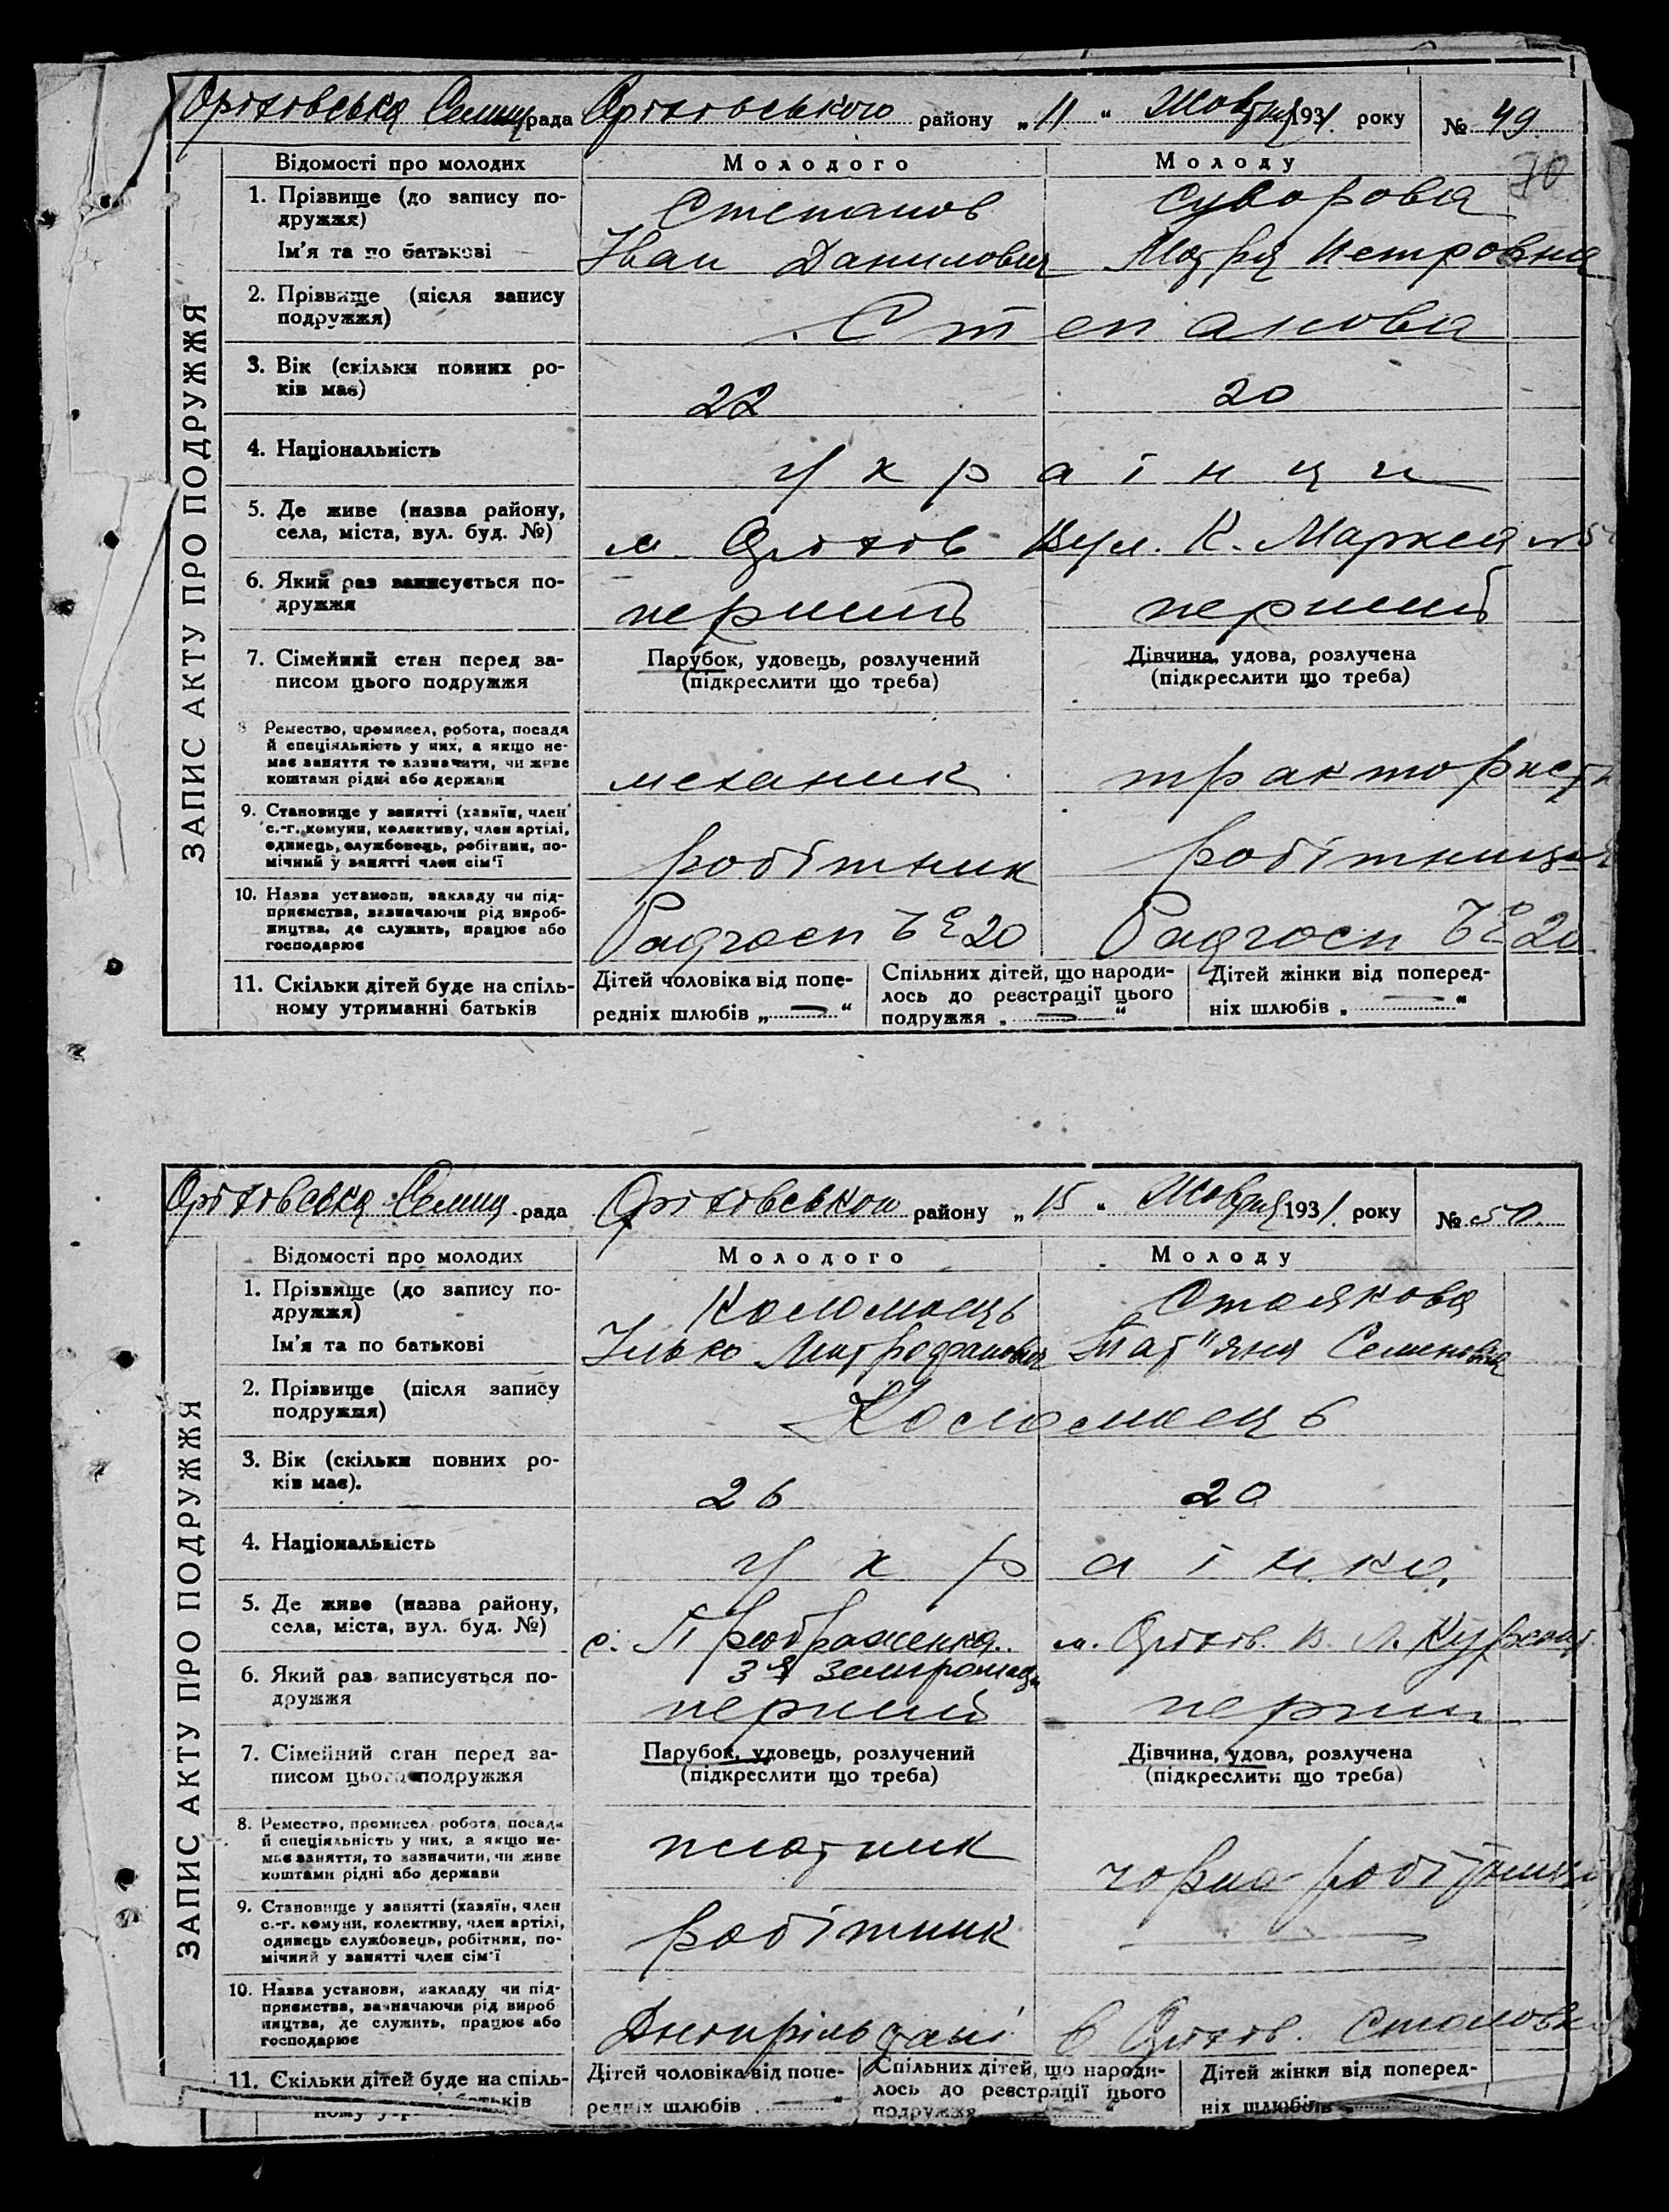 Оріховська Селищ рада Оріховського району „ 11 “ Жовтня 1931 року № 49
70
ЗАПИС АКТУ ПРО ПОДРУЖЖЯ
Відомості про молодих Молодого Молоду
1. Прізвище (до запису по- Степанов Суворова
дружжя)
Ім'я та по батькові Іван Данилович Мотря Петровна
2. Прізвище (після запису
подружжя) Степанова
3. Вік (скільки повних ро-
ків має) 22 20
4. Національність українци
5. Де живе (назва району,
села, міста, вул. буд. №) м. Оріхів вул. К. Маркса
6. Який раз записується по-
дружжя перший перший
7. Сімейний стан перед за- Парубок, удовець, розлучений Дівчина, удова, розлучена
писом цього подружжя (підкреслити що треба) (підкреслити що треба)
8 Ремество, промисел, робота, посада
й спеціяльність у них, а якщо не-
має заняття то зазначити, чи живе
коштами рідні або держави механик трактористк
9. Становище у занятті (хазяїн, член
с.-г. комуни, колективу, член артілі,
одинець, службовець, робітник, по-
мічний у занятті член сім'ї робітник робітниця
10. Назва установи, закладу чи під-
приємства, зазначаючи рід вироб-
ництва, де служить, працює або
господарює Радгосп 20 Радгосп 20
11. Скільки дітей буде на спіль- Дітей чоловіка від попе- Спільних дітей, що народи- Дітей жінки від поперед-
ному утриманні батьків редніх шлюбів „ — “ лось до реєстрації цього ніх шлюбів „ — “
подружжя „ — “
Оріховська Селищ. рада Оріховського району „ 15 “ Жовтня 1931 року № 50
ЗАПИС АКТУ ПРО ПОДРУЖЖЯ
Відомості про молодих Молодого Молоду
1. Прізвище (до запису по- Коломоець Стоякова
дружжя)
Ім'я та по батькові Ілько Митрофанович Тат"яна Семеновна
2. Прізвище (після запису
подружжя) Коломоець
3. Вік (скільки повних ро-
ків має). 26 20
4. Національність українко
5. Де живе (назва району,
села, міста, вул. буд. №) с. Преображенка м. Оріхів.
3я земгромад
6. Який раз записується по-
дружжя перший перший
7. Сімейний стан перед за- Парубок, удовець, розлучений Дівчина, удова, розлучена
писом цього подружжя (підкреслити що треба) (підкреслити що треба)
8. Ремество, промисел робота, посада
й спеціяльність у них, а якщо не-
має заняття, то зазначити, чи живе
коштами рідні або держави плотник чорно-робітниця
9. Становище у занятті (хазяїн, член
с.-г. комуни, колективу, член артілі,
одинець службовець, робітник, по-
мічний у занятті член сім'ї робітник —
10. Назва установи, закладу чи під-
приємства, зазначаючи рід вироб
ництва, де служить, працює або
господарює в Оріхів. Столовк
11. Скільки дітей буде на спіль- Дітей чоловіка від попе- Спільних дітей, що народи- Дітей жінки від поперед-
ному батьків редніх шлюбів — “ лось до реєстрації цього ніх шлюбів „
подружжя “